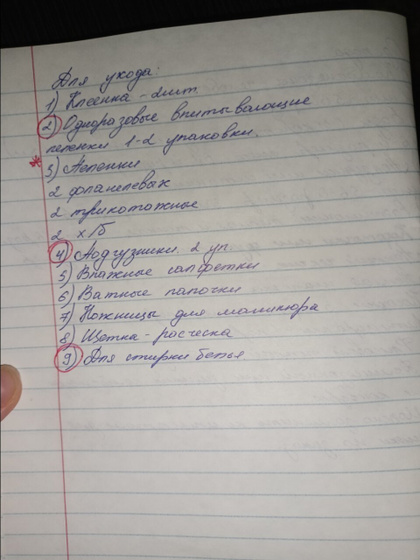 Для ухода
1) Клеенка - 2шт
2) Одноразовые впитывающие
пеленки 1-2 упаковки.
* 3) Пеленки
2 фланелевых
2 трикотажные
2 х/б
4) Подгузники 2 уп
5) Влажные салфетки
6) Ватные палочки
7) Ножницы для маникюра
8) Щетка - расческа
9) Для стирки белья